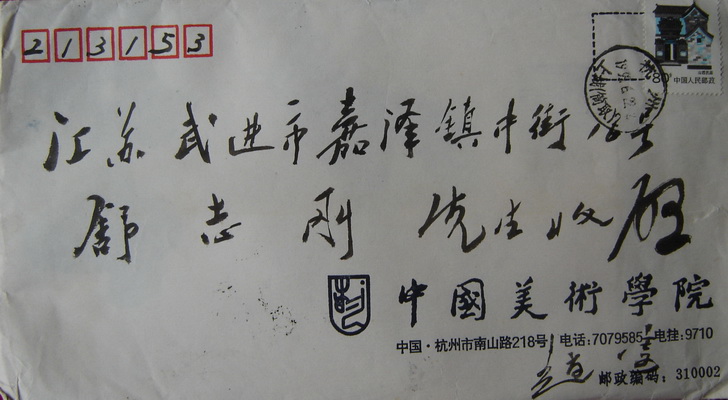 213153
80分 中国人民邮政
杭州
江苏武进市嘉泽镇中街
舒志刚 先生收启
中國美術學院
中国·杭州市南山路218号 电话:7079585 电挂:9710
邮政编码:310002